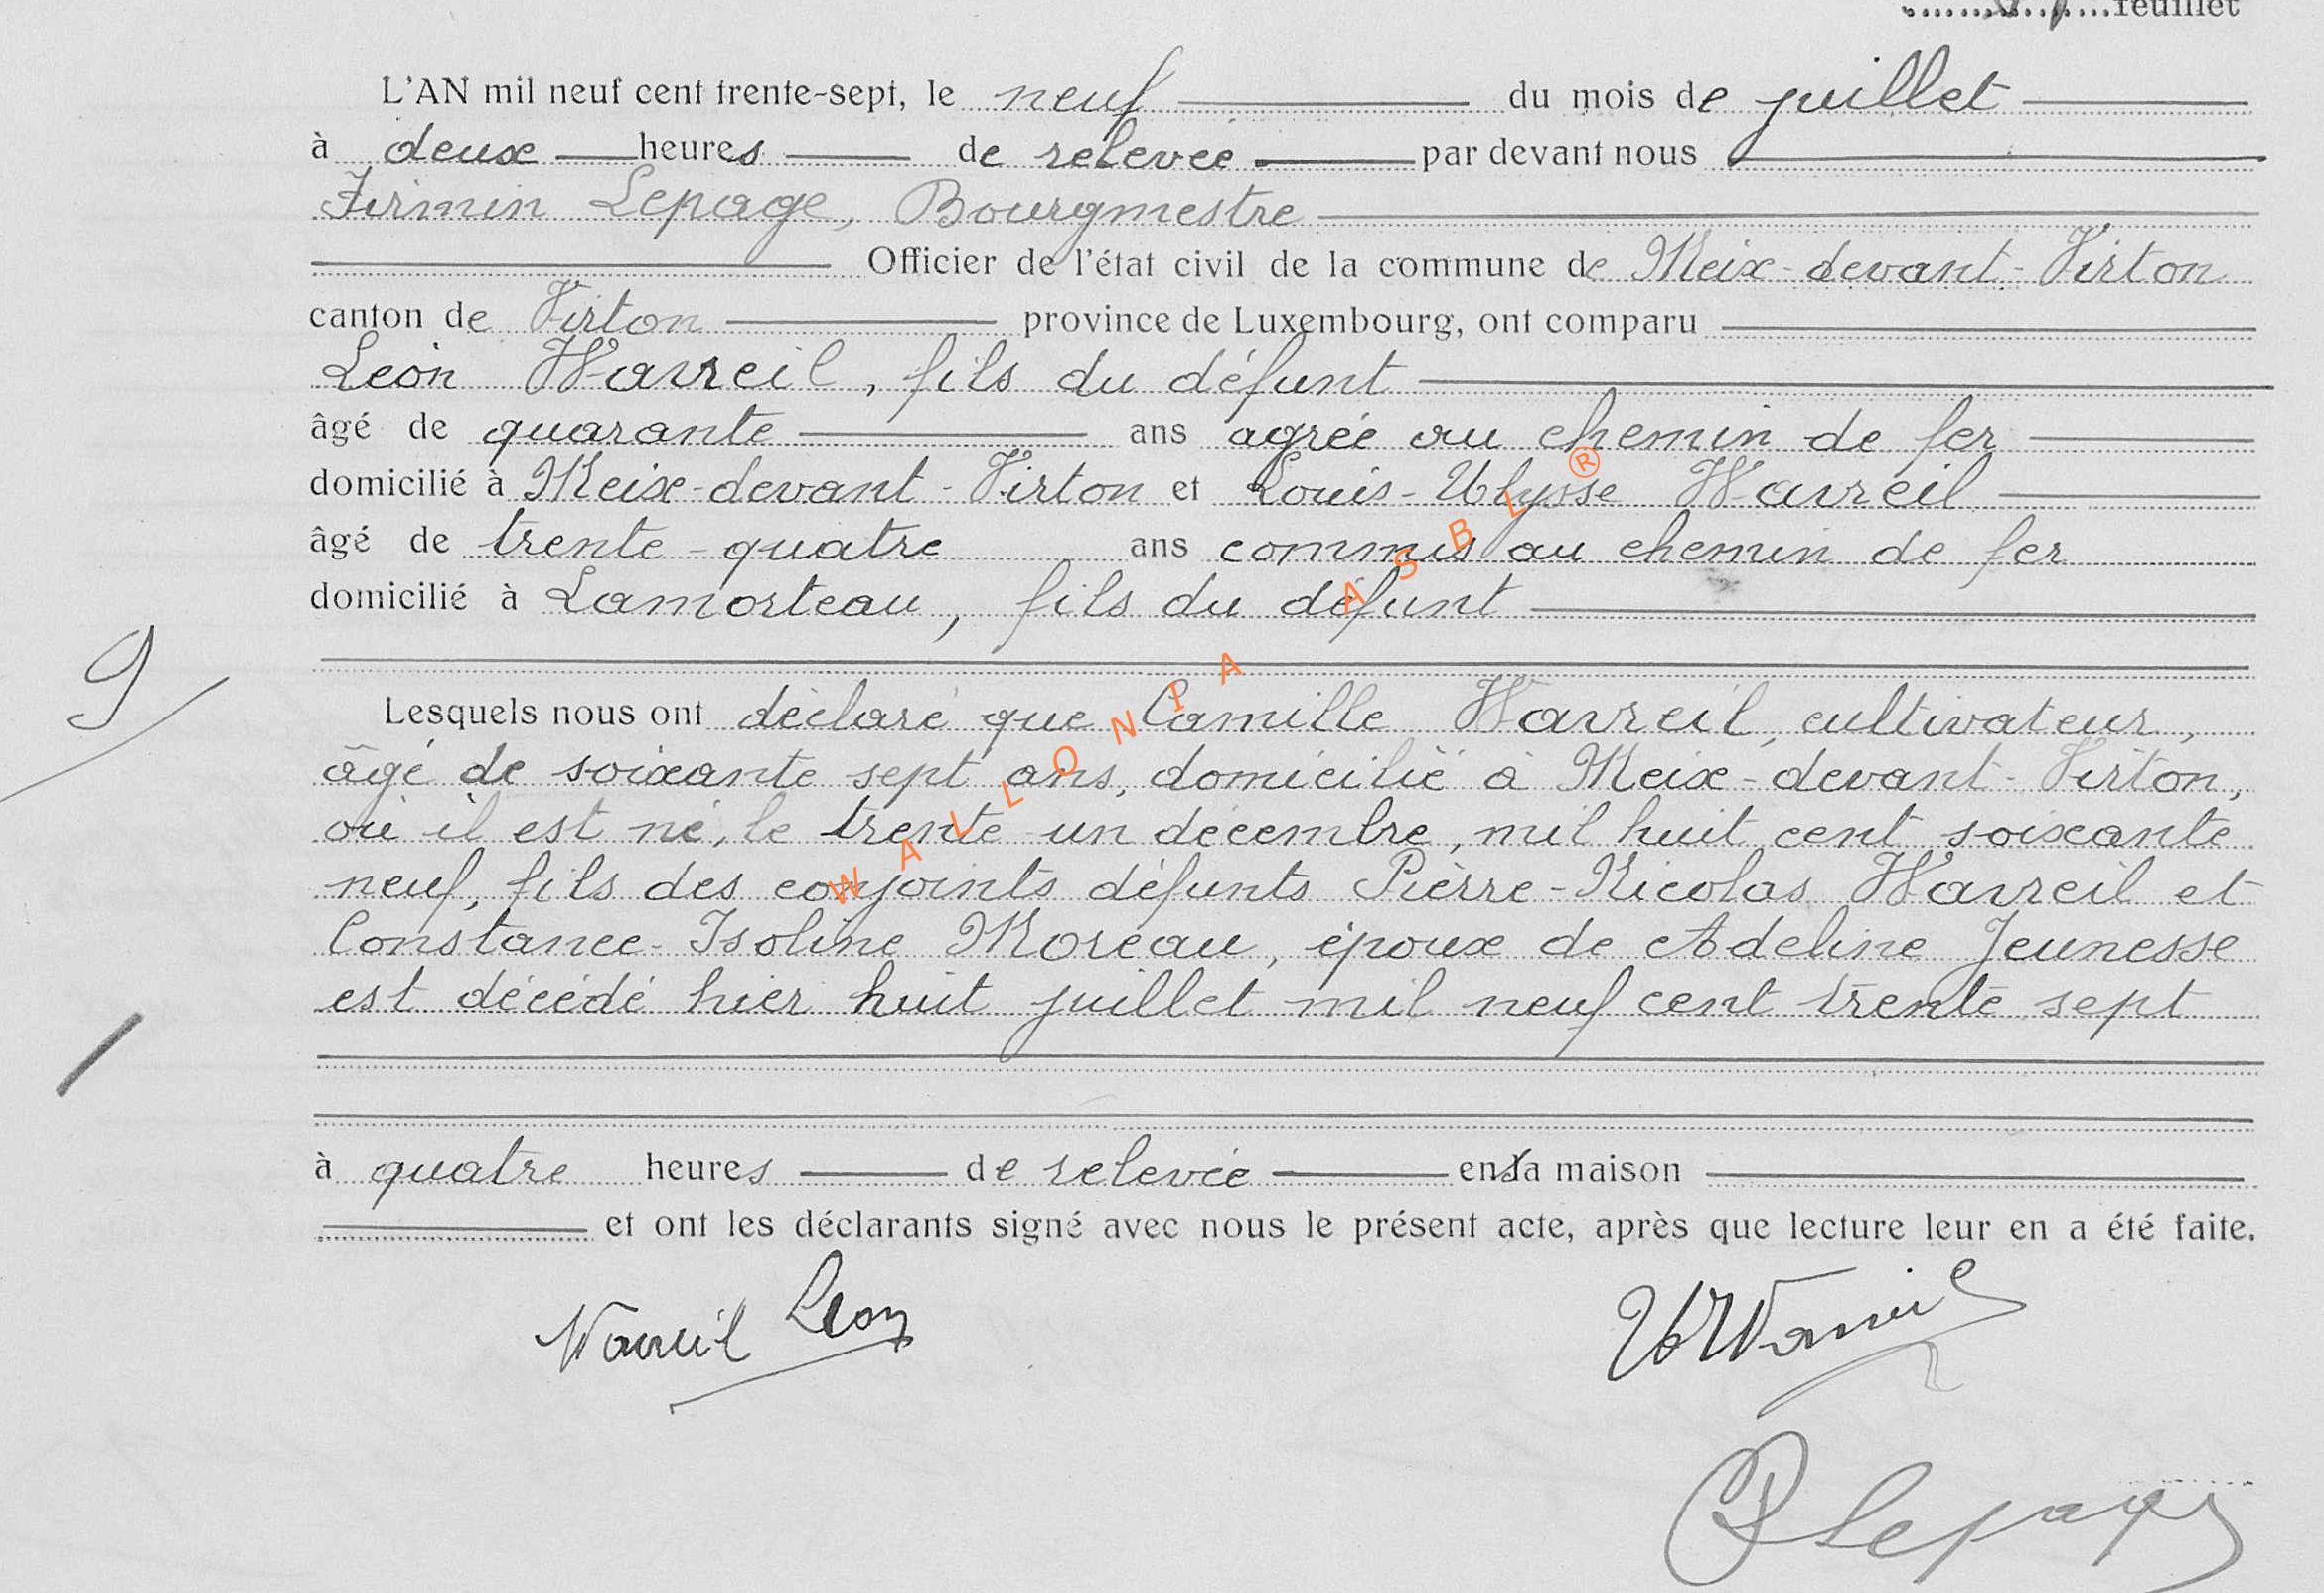 feuillet
L'AN mil neuf cent trente-sept, le neuf du mois de juillet
à deux heures de relevée par devant nous
Firmin Lepage, Bourgmestre
Officier de l'état civil de la commune de Meix-devant-Virton
canton de Virton province de Luxembourg, ont comparu
Léon Wavreil, fils du défunt
âgé de quarante ans agréé au chemin de fer
domicilié à Meix-devant-Virton et Louis-Ulysse Wavreil
âgé de trente-quatre ans commis au chemin de fer
domicilié à Lamorteau, fils du défunt
9
Lesquels nous ont déclaré que Camille Wavreil, cultivateur,
âgé de soixante sept ans, domicilié à Meix-devant-Virton,
où il est né, le trente-un décembre, mil huit cent soixante
neuf, fils des conjoints défunts Pierre-Nicolas Wavreil et
Constance-Isoline Moreau, époux de Adeline Jeunesse
est décédé hier huit juillet mil neuf cent trente sept
à quatre heures de relevée en sa maison
et ont les déclarants signé avec nous le présent acte, après que lecture leur en a été faite.
Wavreil Léon
UWavreil
Lepage
WALLONIA ASBL ®